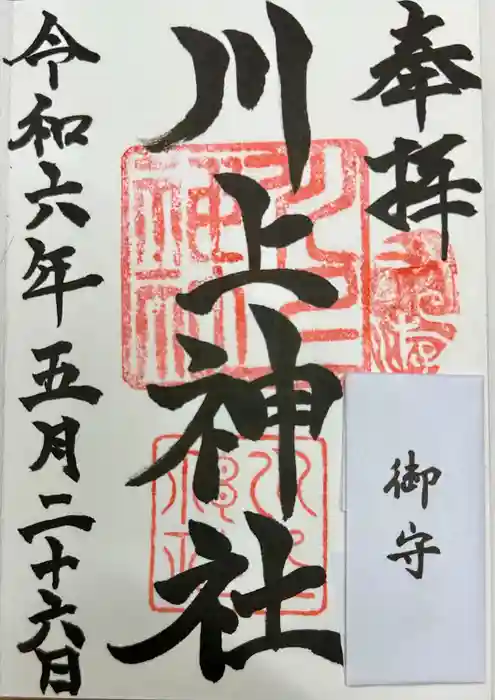 奉拝
川上神社
令和六年五月二十六日
御守